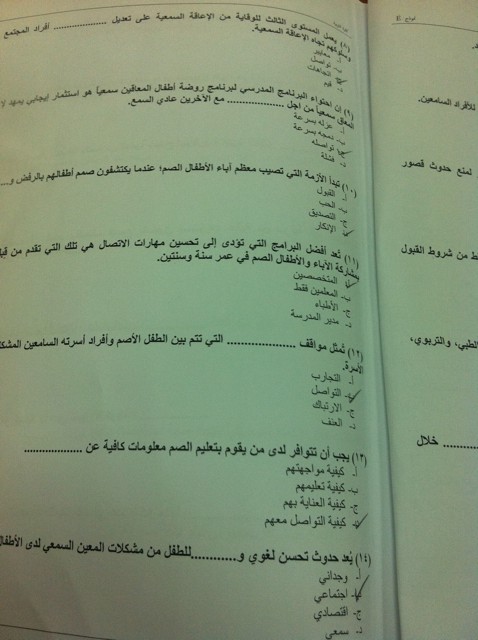 نموذج E
(٨) يعمل المستوى الثالث للوقاية من الإعاقة السمعية على تعديل .................... أفراد المجتمع
وسلوكهم تجاه الإعاقة السمعية.
أ- معايير
ب- تواصل
ج- اتجاهات
د- قيم
(٩) إن احتواء البرنامج المدرسي لبرنامج روضة أطفال المعاقين سمعياً هو استثمار إيجابي يمهد
المعاق سمعياً من أجل .................... مع الآخرين عادي السمع.
أ- عزله بسرعة
ب- دمجه بسرعة
ج- تواصله
د- فشله
(١٠) تبدأ الأزمة التي تصيب معظم آباء الأطفال الصم؛ عندما يكتشفون صمم أطفالهم بالرفض و....
أ- القبول
ب- الحب
ج- التصديق
د- الإنكار
(١١) تعد أفضل البرامج التي تؤدى إلى تحسين مهارات الاتصال هي تلك التي تقدم من
بمشاركة الآباء والأطفال الصم في عمر سنة وسنتين.
أ- المتخصصين
ب- المعلمين فقط
ج- الأطباء
د- مدير المدرسة
(١٢) تمثل مواقف .................... التي تتم بين الطفل الأصم وأفراد أسرته السامعين
الأسرة.
أ- التجارب
ب- التواصل
ج- الارتباك
د- العنف
(١٣) يجب أن تتوافر لدى من يقوم بتعليم الصم معلومات كافية عن ....................
أ- كيفية مواجهتهم
ب- كيفية تعليمهم
ج- كيفية العناية بهم
د- كيفية التواصل معهم
(١٤) يُعد حدوث تحسن لغوي و............للطفل من مشكلات المعين السمعي لدى
أ- وجداني
ب- اجتماعي
ج- اقتصادي
د- سمعي
للأفراد السامعين.
لمنع حدوث قصور
من شروط القبول
والتربوي،
.......... خلال